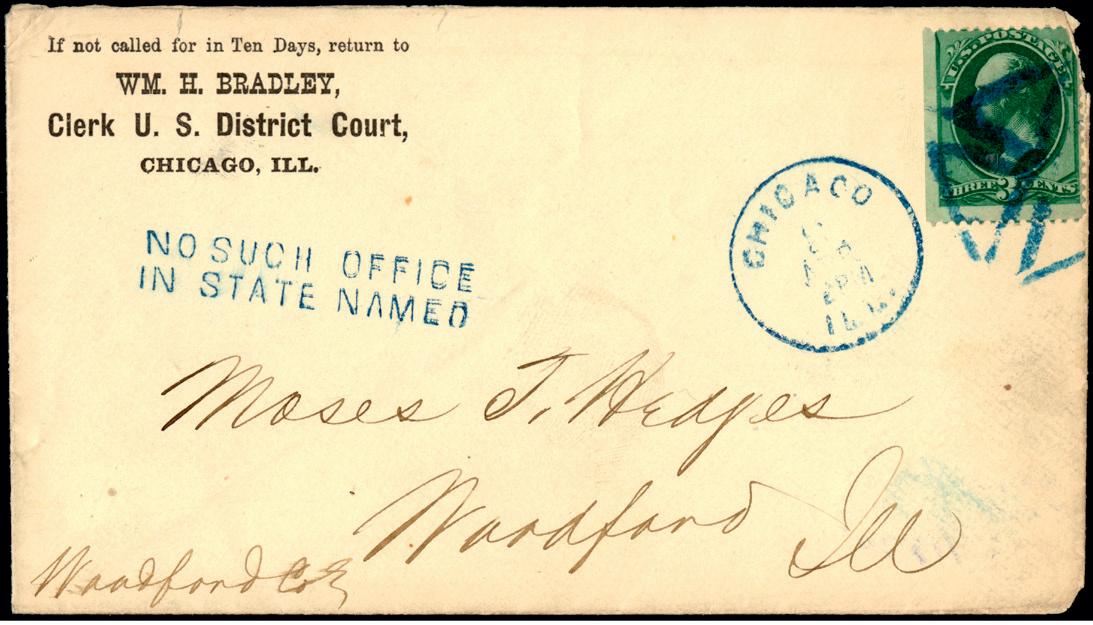 If not called for in Ten Days, return to
WM. H. BRADLEY,
Clerk U. S. District Court,
CHICAGO, ILL.
U.S. POSTAGE
THREE 3 CENTS
CHICAGO
ILL.
NO SUCH OFFICE
IN STATE NAMED
Moses T. Hedges
Woodford Ill
Woodford Co